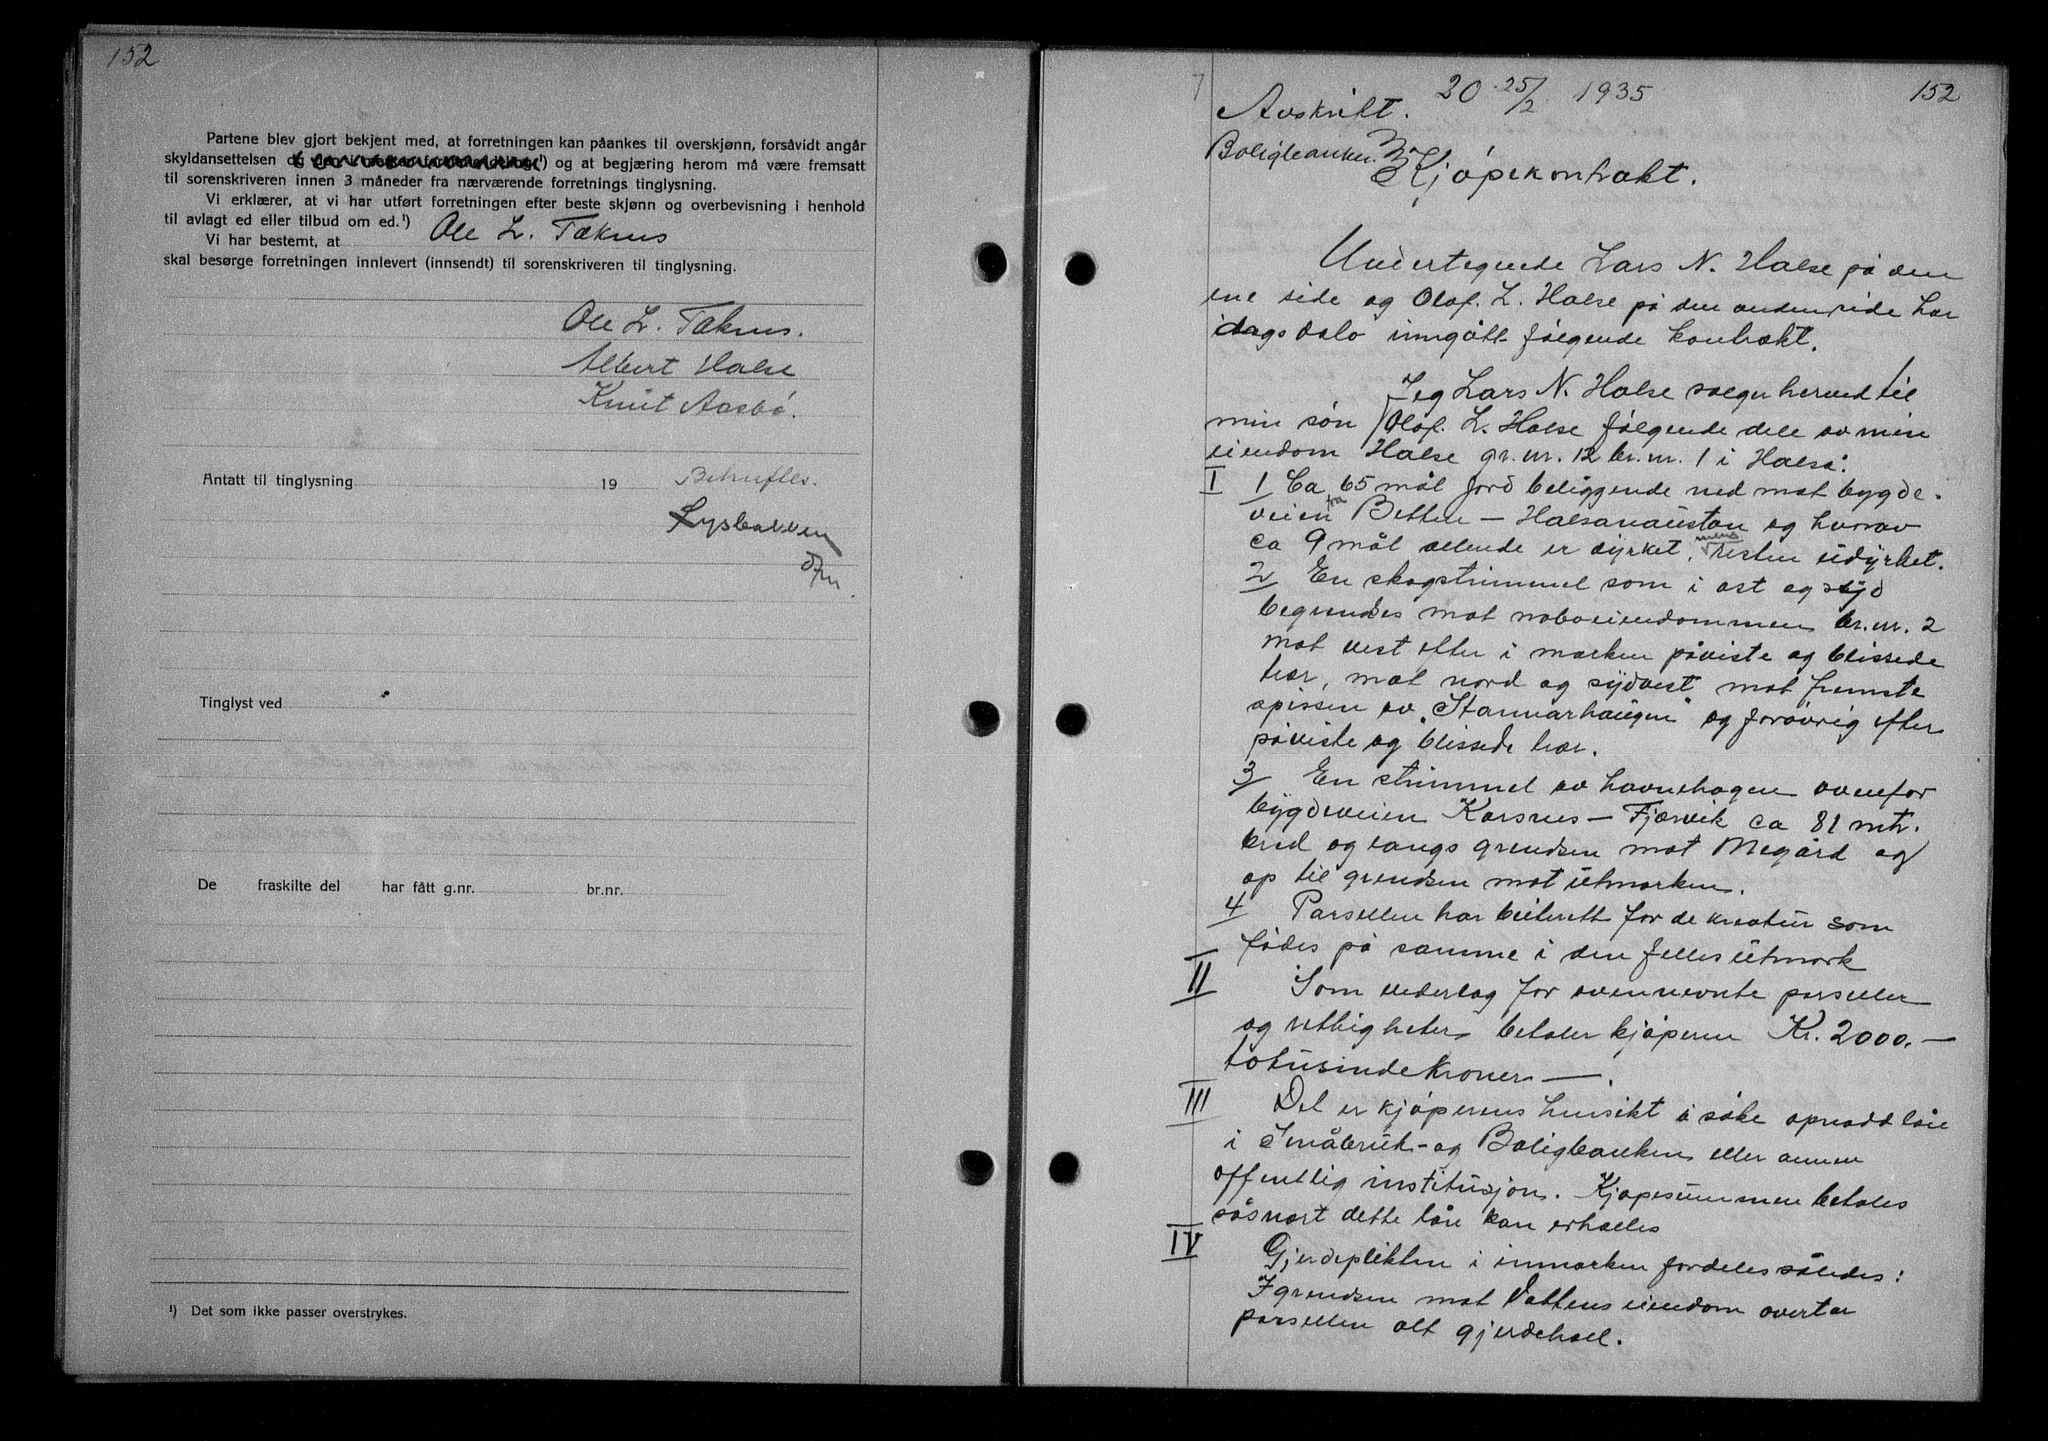 152
Partene blev gjort bekjent med, at forretningen kan påankes til overskjønn, forsåvidt angår
skyldansettelsen og ¹) og at begjæring herom må være fremsatt
til sorenskriveren innen 3 måneder fra nærværende forretnings tinglysning.
Vi erklærer, at vi har utført forretningen efter beste skjønn og overbevisning i henhold
til avlagt ed eller tilbud om ed.¹)
Vi har bestemt, at Ole L. Taknes
skal besørge forretningen innlevert (innsendt) til sorenskriveren til tinglysning.
Ole L. Taknes.
Albert Halse
Knut Aasbö.
Antatt til tinglysning 19
Lysbakken
Tinglyst ved
De fraskilte del har fått g.nr. br.nr.
¹) Det som ikke passer overstrykes.
20 25/2 1935 152
Avskrift.
Boligbanken.
Kjöpekontrakt.
Undertegnede Lars N. Halse på den
ene side og Olaf. L. Halse på den anden side har
idag inngått fölgende kontrakt.
Jeg Lars N. Halse selger herved til
min sön Olaf. L. Halse fölgende dele av min
eiendom Halse gr. nr. 12 br. nr. 1 i Halsa:
I 1 Ca 65 mål jord beliggende ned mot bygde-
veien fra Betten - Halsanaustan og hvorav
ca 9 mål allende er dyrket, mens resten udyrket.
2 En skogstrimmel som i öst og syd
begrendses mot naboeiendommen br. nr. 2
mot vest efter i marken påviste og blissede
trær, mot nord og sydvest mot fremste
spissen av "Stannarhaugen" og forövrig efter
påviste og blissede trær.
3 En strimmel av havnehagen ovenfor
bygdeveien Korsnes - Fjærvik ca 81 mtr.
bred og langs grendsen mot Megård og
op til grendsen mot utmarken.
4 Parsellen har beiterett for de kreatur som
födes på samme i den felles utmark
II Som vederlag for ovennevnte parseller
og rettigheter betaler kjöperen Kr. 2000.-
totusindekroner -.
III Det er kjöperens hensikt å söke opnådd lån
i Småbruk- og Boligbanken eller annen
offentlig institusjon. Kjöpesummen betales
såsnart dette lån kan erholles
IV Gjerdeplikten i innmarken fordeles således:
I grendsen mot Vattens eiendom overtar
parsellen alt gjerdehold.